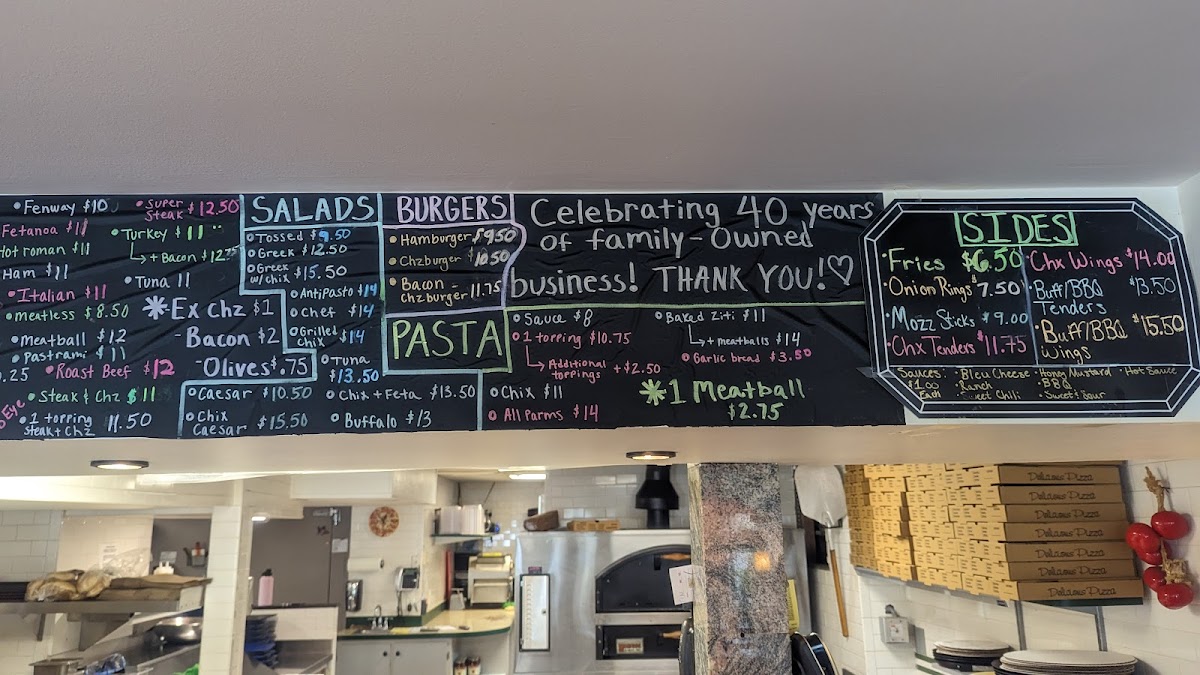 • Fenway $10
Fetanoa $11
Hot roman $11
Ham $11
• Italian $11
• Meatless $8.50
• Meatball $12
• Pastrami $11
• Roast Beef $12
• Steak & Chz $11
• 1 topping
steak + Chz 11.50
• Super
Steak $12.50
• Turkey $11
+ Bacon $12.75
• Tuna 11
* Ex Chz $1
- Bacon $2
- Olives $.75
SALADS
• Tossed $9.50
• Greek $12.50
• Greek
w/ chix $15.50
• AntiPasto $14
• Chef $14
• Grilled
Chix $14
• Tuna
$13.50
• Caesar $10.50
• Chix
Caesar $15.50
• Chix + Feta $13.50
• Buffalo $13
BURGERS
• Hamburger $9.50
• Chzburger $10.50
• Bacon -
Chzburger 11.75
PASTA
• Sauce $8
• 1 topping $10.75
Additional
toppings + $2.50
• Chix $11
• All Parms $14
• Baked Ziti $11
+ meatballs $14
• Garlic bread $3.50
* 1 Meatball
$2.75
Celebrating 40 years
of family-owned
business! THANK YOU! ♡
SIDES
• Fries $6.50
• Onion Rings $7.50
• Mozz Sticks $9.00
• Chx Tenders $11.75
• Chx Wings $14.00
• Buff/BBQ $13.50
Tenders
• Buff/BBQ $15.50
Wings
Sauces: • Bleu Cheese • Hony Mustard • Hot Sauce
$1.00 • Ranch • BBQ
Each • Sweet Chili • Sweet & Sour
Delicious Pizza
Delicious Pizza
Delicious Pizza
Delicious Pizza
Delicious Pizza
Delicious Pizza